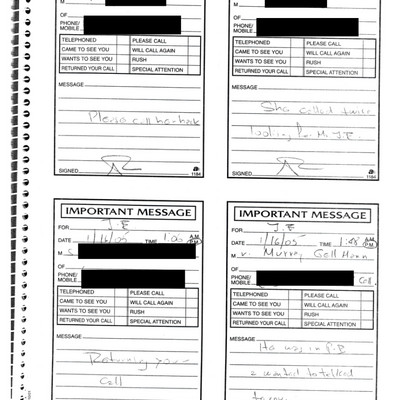 M
OF
PHONE/
MOBILE
TELEPHONED PLEASE CALL
CAME TO SEE YOU WILL CALL AGAIN
WANTS TO SEE YOU RUSH
RETURNED YOUR CALL SPECIAL ATTENTION
MESSAGE
Please call
SIGNED 1184
OF
PHONE/
MOBILE
TELEPHONED PLEASE CALL
CAME TO SEE YOU WILL CALL AGAIN
WANTS TO SEE YOU RUSH
RETURNED YOUR CALL SPECIAL ATTENTION
MESSAGE
She called
looking for
SIGNED 1184
IMPORTANT MESSAGE
FOR J.E
DATE 1/16/05 TIME A.M. P.M.
M
OF
PHONE/
MOBILE
TELEPHONED PLEASE CALL
CAME TO SEE YOU WILL CALL AGAIN
WANTS TO SEE YOU RUSH
RETURNED YOUR CALL SPECIAL ATTENTION
MESSAGE
Returning your
call
IMPORTANT MESSAGE
FOR J.E
DATE 1/16/05 TIME A.M. P.M.
M
OF
PHONE/
MOBILE Cell.
TELEPHONED PLEASE CALL
CAME TO SEE YOU WILL CALL AGAIN
WANTS TO SEE YOU RUSH
RETURNED YOUR CALL SPECIAL ATTENTION
MESSAGE
He was in P.B
wanted to